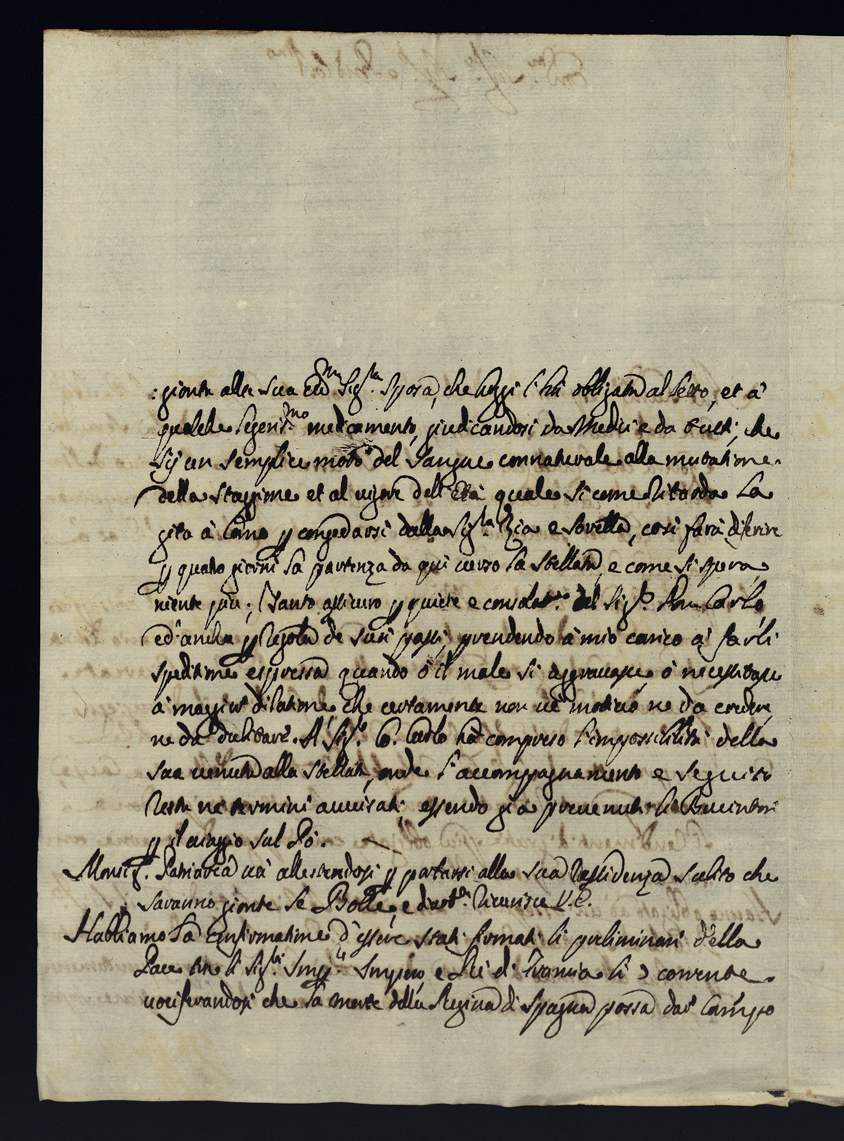 :gionta alla sua Ecc.ma Sig.ra Sposa, che hoggi l'hà obligata al letto, et à
qualche legeriss.mo medicamento, giudicandosi da Medici e da tutti, che
sij un semplice moto del Sangue connaturale alla mutatione
della staggione et al vigore dell'Età quale si come ritarda la
gita à Como p congedarsi dalla Sig.ra Zia e Sorella, così farà diferire
p qualc giorni la partenza da qui verso la Stellata, e come si spera
niente più; Tanto assicuro p quiete e consolat.ne del Sig.r Don Carlo
ed anche p regola de suoi passi, prendendo à mio carico à farli
speditione espressa quando ò il male si aggravasse ò necessitasse
à maggior dilatione che certamente non vè motivo ne da creder,
ne da dubitare. Al Sig.r C. Carlo hà compreso l'impossibilità della
sua venuta alla Stellata, onde l'accompagnamento e seguito
resta ne termini avvisati, essendo già prevenuti li Bucintori
p il viaggio sul Pò.
Monsig.r Patriarca và allestendosi p portarsi alla sua residenza subito che
saranno gionte le Bolle, e V.E.
Habbiamo la confirmatione d'essere stati firmati li preliminari della
Pace tra li Sig.ri Imp.ri Impero e Rè di Francia li 3 corrente
vociferandosi che la morte della Regina di Spagna possa dar Campo